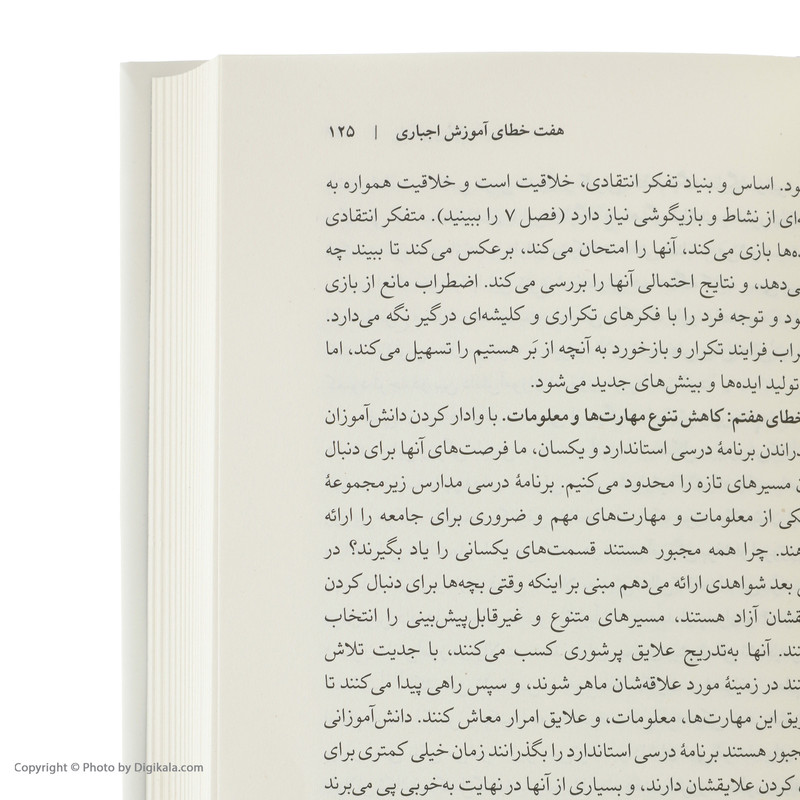 هفت خطای آموزش اجباری | ۱۲۵
اساس و بنیاد تفکر انتقادی، خلاقیت است و خلاقیت همواره به
از نشاط و بازیگوشی نیاز دارد (فصل ۷ را ببینید). متفکر انتقادی
بازی می‌کند، آنها را امتحان می‌کند، برعکس می‌کند تا ببیند چه
و نتایج احتمالی آنها را بررسی می‌کند. اضطراب مانع از بازی
و توجه فرد را با فکرهای تکراری و کلیشه‌ای درگیر نگه می‌دارد.
فرایند تکرار و بازخورد به آنچه از بَر هستیم را تسهیل می‌کند، اما
تولید ایده‌ها و بینش‌های جدید می‌شود.
خطای هفتم: کاهش تنوع مهارت‌ها و معلومات. با وادار کردن دانش‌آموزان
برنامهٔ درسی استاندارد و یکسان، ما فرصت‌های آنها برای دنبال
مسیرهای تازه را محدود می‌کنیم. برنامهٔ درسی مدارس زیرمجموعهٔ
از معلومات و مهارت‌های مهم و ضروری برای جامعه را ارائه
چرا همه مجبور هستند قسمت‌های یکسانی را یاد بگیرند؟ در
بعد شواهدی ارائه می‌دهم مبنی بر اینکه وقتی بچه‌ها برای دنبال کردن
آزاد هستند، مسیرهای متنوع و غیرقابل‌پیش‌بینی را انتخاب
آنها به‌تدریج علایق پرشوری کسب می‌کنند، با جدیت تلاش
در زمینهٔ مورد علاقه‌شان ماهر شوند، و سپس راهی پیدا می‌کنند تا
این مهارت‌ها، معلومات، و علایق امرار معاش کنند. دانش‌آموزانی
مجبور هستند برنامهٔ درسی استاندارد را بگذرانند زمان خیلی کمتری برای
کردن علایقشان دارند، و بسیاری از آنها در نهایت به‌خوبی پی می‌برند
Copyright © Photo by Digikala.com